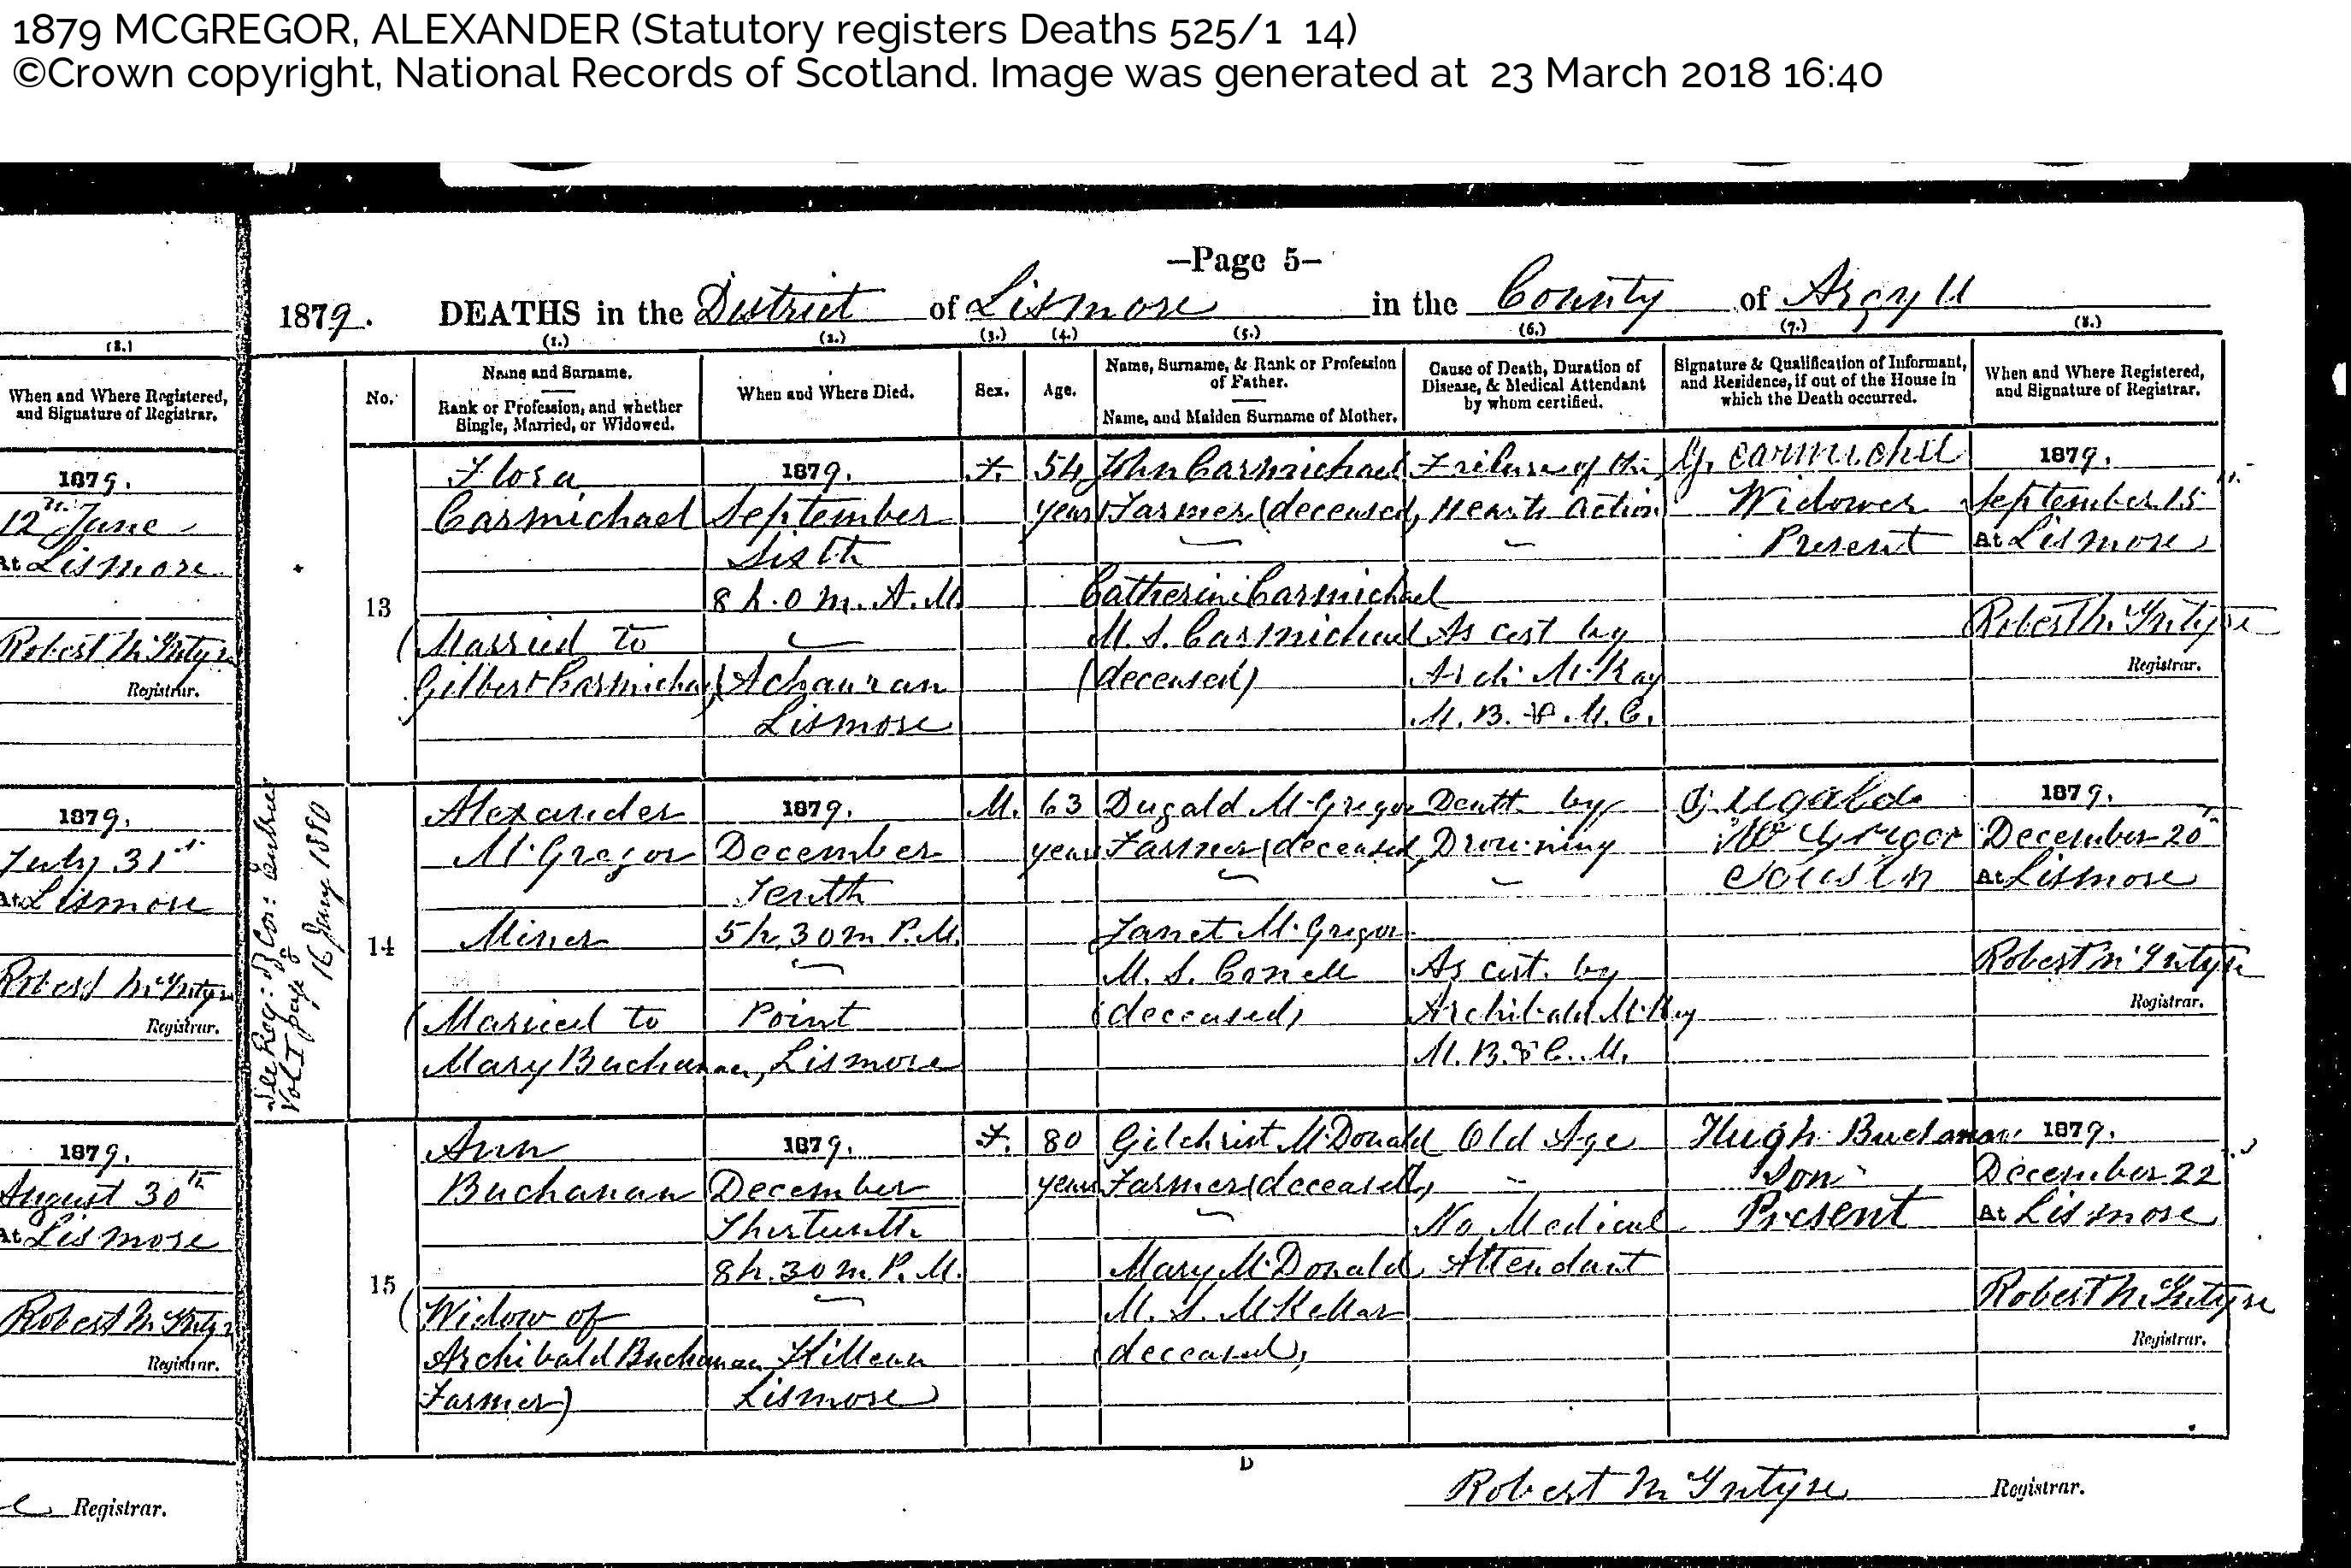 1879 MCGREGOR, ALEXANDER (Statutory registers Deaths 525/1 14)
©Crown copyright, National Records of Scotland. Image was generated at 23 March 2018 16:40
—Page 5—
1879. DEATHS in the District of Lismore in the County of Argyll
(1.) (2.) (3.) (4.) (5.) (6.) (7.) (8.)
No.
Name and Surname.
Rank or Profession, and whether
Single, Married, or Widowed.
When and Where Died.
Sex.
Age.
Name, Surname, & Rank or Profession
of Father.
Name, and Maiden Surname of Mother.
Cause of Death, Duration of
Disease, & Medical Attendant
by whom certified.
Signature & Qualification of Informant,
and Residence, if out of the House in
which the Death occurred.
When and Where Registered,
and Signature of Registrar.
13
Flora
Carmichael
(Married to
Gilbert Carmichael)
1879.
September
Sixth
8 h. 0 m. A.M.
Achauran
Lismore
F.
54
years
John Carmichael
Farmer (deceased)
Catherine Carmichael
M.S. Carmichael
(deceased)
Failure of the
Hearts action
As cert by
Arch. McKay
M.B. & M.C.
G. Carmichel
Widower
Present
1879.
September 15
At Lismore
Robert McIntyre
Registrar.
See Reg: of Cor: Entries
Vol I page
16 Jany 1880
14
Alexander
McGregor
Miner
(Married to
Mary Buchanan)
1879.
December
Tenth
5 h. 30 m P.M.
Point
Lismore
M.
63
years
Dugald McGregor
Farmer (deceased)
Janet McGregor
M.S. Conell
(deceased)
Death by
Drowning
As cert. by
Archibald McKay
M.B. & C.M.
Dugald
McGregor
Cousin
1879.
December 20th
At Lismore
Robert McIntyre
Registrar.
15
Ann
Buchanan
(Widow of
Archibald Buchanan
Farmer)
1879.
December
Thirteenth
8 h. 30 m. P.M.
Killean
Lismore
F.
80
years
Gilchrist McDonald
Farmer (deceased)
Mary McDonald
M.S. McKellar
(deceased)
Old Age
No Medical
Attendant
Hugh Buchanan
Son
Present
1879.
December 22
At Lismore
Robert McIntyre
Registrar.
D
Robert McIntyre Registrar.
(8.)
When and Where Registered,
and Signature of Registrar.
1879.
12th June
At Lismore
Robert McIntyre
Registrar.
1879.
July 31st
At Lismore
Robert McIntyre
Registrar.
1879.
August 30th
At Lismore
Robert McIntyre
Registrar.
Registrar.